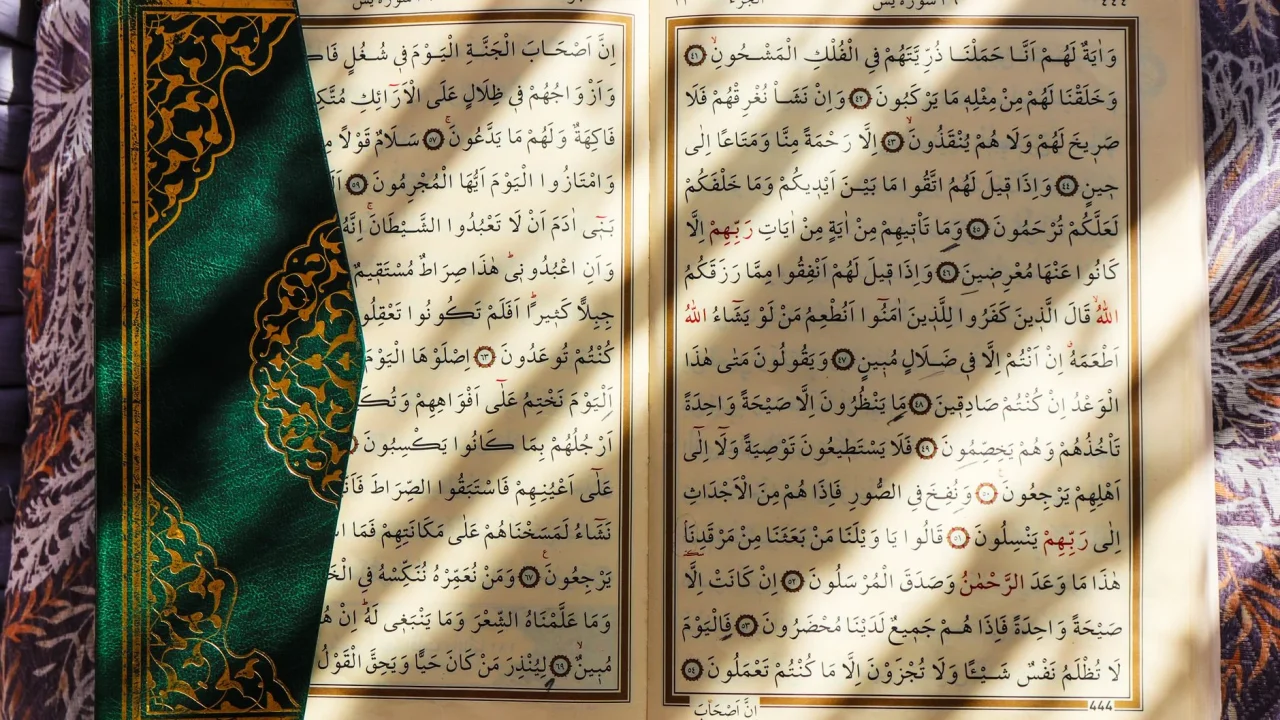 الجزء سورة يس
وَاٰيَةٌ لَهُمْ اَنَّا حَمَلْنَا ذُرِّيَّتَهُمْ فِي الْفُلْكِ الْمَشْحُونِۙ ٤١
وَخَلَقْنَا لَهُمْ مِنْ مِثْلِه۪ مَا يَرْكَبُونَ ٤٢ وَاِنْ نَشَأْ نُغْرِقْهُمْ فَلَا
صَر۪يخَ لَهُمْ وَلَا هُمْ يُنْقَذُونَۙ ٤٣ اِلَّا رَحْمَةً مِنَّا وَمَتَاعًا اِلٰى
ح۪ينٍ ٤٤ وَاِذَا ق۪يلَ لَهُمُ اتَّقُوا مَا بَيْنَ اَيْد۪يكُمْ وَمَا خَلْفَكُمْ
لَعَلَّكُمْ تُرْحَمُونَ ٤٥ وَمَا تَأْت۪يهِمْ مِنْ اٰيَةٍ مِنْ اٰيَاتِ رَبِّهِمْ اِلَّا
كَانُوا عَنْهَا مُعْرِض۪ينَ ٤٦ وَاِذَا ق۪يلَ لَهُمْ اَنْفِقُوا مِمَّا رَزَقَكُمُ
اللّٰهُۙ قَالَ الَّذ۪ينَ كَفَرُوا لِلَّذ۪ينَ اٰمَنُٓوا اَنُطْعِمُ مَنْ لَوْ يَشَٓاءُ اللّٰهُ
اَطْعَمَهُۗ اِنْ اَنْتُمْ اِلَّا ف۪ي ضَلَالٍ مُب۪ينٍ ٤٧ وَيَقُولُونَ مَتٰى هٰذَا
الْوَعْدُ اِنْ كُنْتُمْ صَادِق۪ينَ ٤٨ مَا يَنْظُرُونَ اِلَّا صَيْحَةً وَاحِدَةً
تَأْخُذُهُمْ وَهُمْ يَخِصِّمُونَ ٤٩ فَلَا يَسْتَط۪يعُونَ تَوْصِيَةً وَلَٓا اِلٰٓى
اَهْلِهِمْ يَرْجِعُونَ۟ ٥٠ وَنُفِخَ فِي الصُّورِ فَاِذَا هُمْ مِنَ الْاَجْدَاثِ
اِلٰى رَبِّهِمْ يَنْسِلُونَ ٥١ قَالُوا يَا وَيْلَنَا مَنْ بَعَثَنَا مِنْ مَرْقَدِنَاۢ
هٰذَا مَا وَعَدَ الرَّحْمٰنُ وَصَدَقَ الْمُرْسَلُونَ ٥٢ اِنْ كَانَتْ اِلَّا
صَيْحَةً وَاحِدَةً فَاِذَا هُمْ جَم۪يعٌ لَدَيْنَا مُحْضَرُونَ ٥٣ فَالْيَوْمَ
لَا تُظْلَمُ نَفْسٌ شَيْـًٔا وَلَا تُجْزَوْنَ اِلَّا مَا كُنْتُمْ تَعْمَلُونَ ٥٤
444
اِنَّ اَصْحَابَ
سورة يس
اِنَّ اَصْحَابَ الْجَنَّةِ الْيَوْمَ ف۪ي شُغُلٍ
وَاَزْوَاجُهُمْ ف۪ي ظِلَالٍ عَلَى الْاَرَٓائِكِ
فَاكِهَةٌ وَلَهُمْ مَا يَدَّعُونَۚ ٥٧ سَلَامٌ قَوْلًا
وَامْتَازُوا الْيَوْمَ اَيُّهَا الْمُجْرِمُونَ ٥٩
بَن۪ٓي اٰدَمَ اَنْ لَا تَعْبُدُوا الشَّيْطَانَۚ اِنَّهُ
وَاَنِ اعْبُدُون۪يۜ هٰذَا صِرَاطٌ مُسْتَق۪يمٌ
جِبِلًّا كَث۪يرًاۜ اَفَلَمْ تَكُونُوا تَعْقِلُو
كُنْتُمْ تُوعَدُونَ ٦٣ اِصْلَوْهَا الْيَوْمَ
اَلْيَوْمَ نَخْتِمُ عَلٰٓى اَفْوَاهِهِمْ وَتُكَ
اَرْجُلُهُمْ بِمَا كَانُوا يَكْسِبُونَ
عَلٰٓى اَعْيُنِهِمْ فَاسْتَبَقُوا الصِّرَاطَ فَاَنّٰ
نَشَٓاءُ لَمَسَخْنَاهُمْ عَلٰى مَكَانَتِهِمْ فَمَا
يَرْجِعُونَ۟ ٦٧ وَمَنْ نُعَمِّرْهُ نُنَكِّسْهُ فِي
وَمَا عَلَّمْنَاهُ الشِّعْرَ وَمَا يَنْبَغ۪ي لَهُۜ اِنْ
مُب۪ينٌۙ ٦٩ لِيُنْذِرَ مَنْ كَانَ حَيًّا وَيَحِقَّ الْقَوْلُ